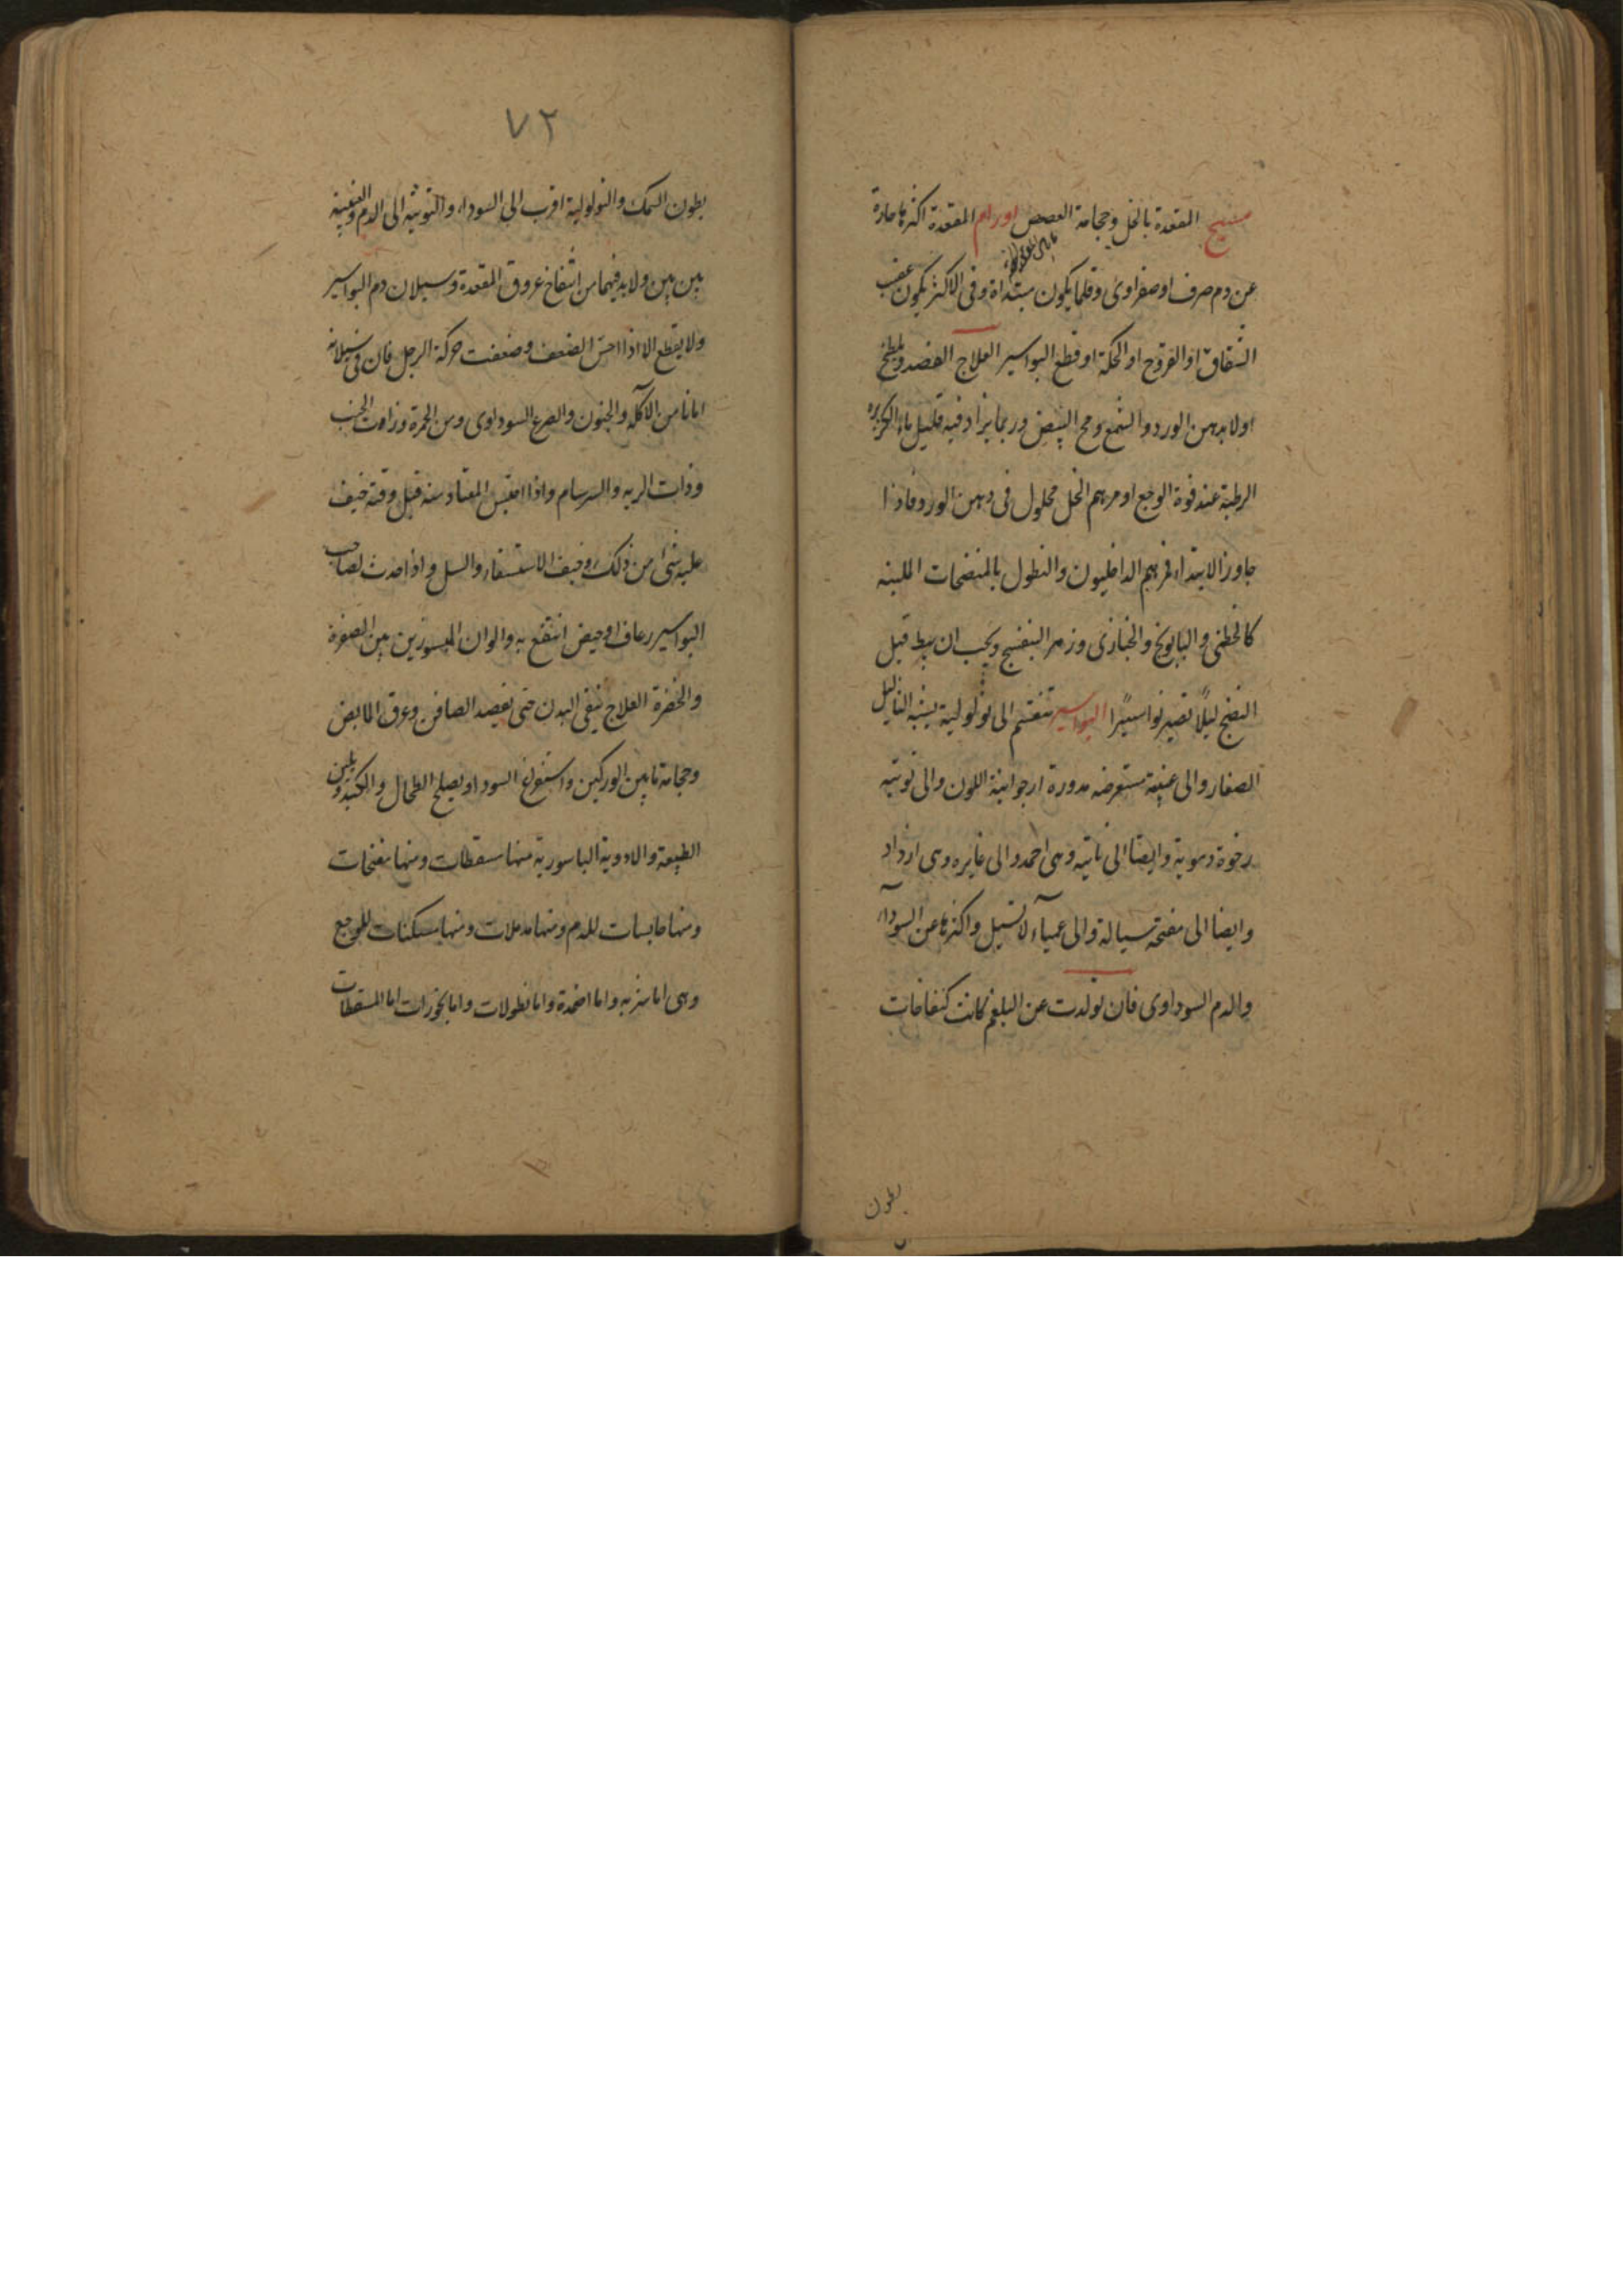 مسيح المقعدة بالخل وحجامة العصعص اورام المقعدة اكثرها حارة
عن دم صرف او صفراوى وقلما يكون مبتداة وفى الاكثر يكون عقب
الشقاق او القروح او الحكة او قطع البواسير العلاج الفصد ويلطخ
اولا بدهن الورد والشمع ومح البيض وربما يزاد فيه قليل ماء الكزبره
الرطبة عند قوة الوجع او مرهم الخل محلول فى دهن الورد فاذا
جاوز الابتداء فمرهم الداخليون والنطول بالمنضجات الملينه
كالخطمى والبابونج والخبازى وزهر البنفسج ويجب ان يبط قبل
النضج ليلا تصير نواسيرا البواسير تنقسم الى ثولولية يشبه الثاليل
الصغار والى عنبية مستعرضه مدورة ارجوانية اللون والى توتيه
رخوة دموية وايضا الى ناتيه وهى احمد والى غايره وهى ارداد
وايضا الى مفتحة سيالة والى عمياء لا تسيل واكثرها عن السوداء
والدم السوداوى فان تولدت عن البلغم كانت كنفاخات
بطون
٧٢
بطون السمك والثولولية اقرب الى السوداء والتوتية الى الدم والعنبية
بين بين ولا بد فيهما من انتفاخ عروق المقعدة وسيلان دم البواسير
ولا يقطع الا اذا احس الضعف وضعفت حركة الرجل فان فى سيلانه
امانا من الآكله والجنون والصرع السوداوى ومن الحمرة وذات الجنب
وذات الريه والسرسام واذا احتبس المعتاد منه قبل وقته خيف
عليه شى من ذلك وخيف الاستسقاء والسل واذا حدث لصاحب
البواسير رعاف او حيض انتفع به والوان المبسورين بين الصفرة
والخضرة العلاج ينقى البدن حتى بفصد الصافن وعرق المابض
وحجامة ما بين الوركين واستفراغ السودا ويصلح الطحال والكبد ويلين
الطبيعة والادوية الباسورية منها مسقطات ومنها مفتحات
ومنها حابسات للدم ومنها مدملات ومنها مسكنات للوجع
وهى اما شربه واما اضمدة واما نطولات واما بخورات اما المسقطات